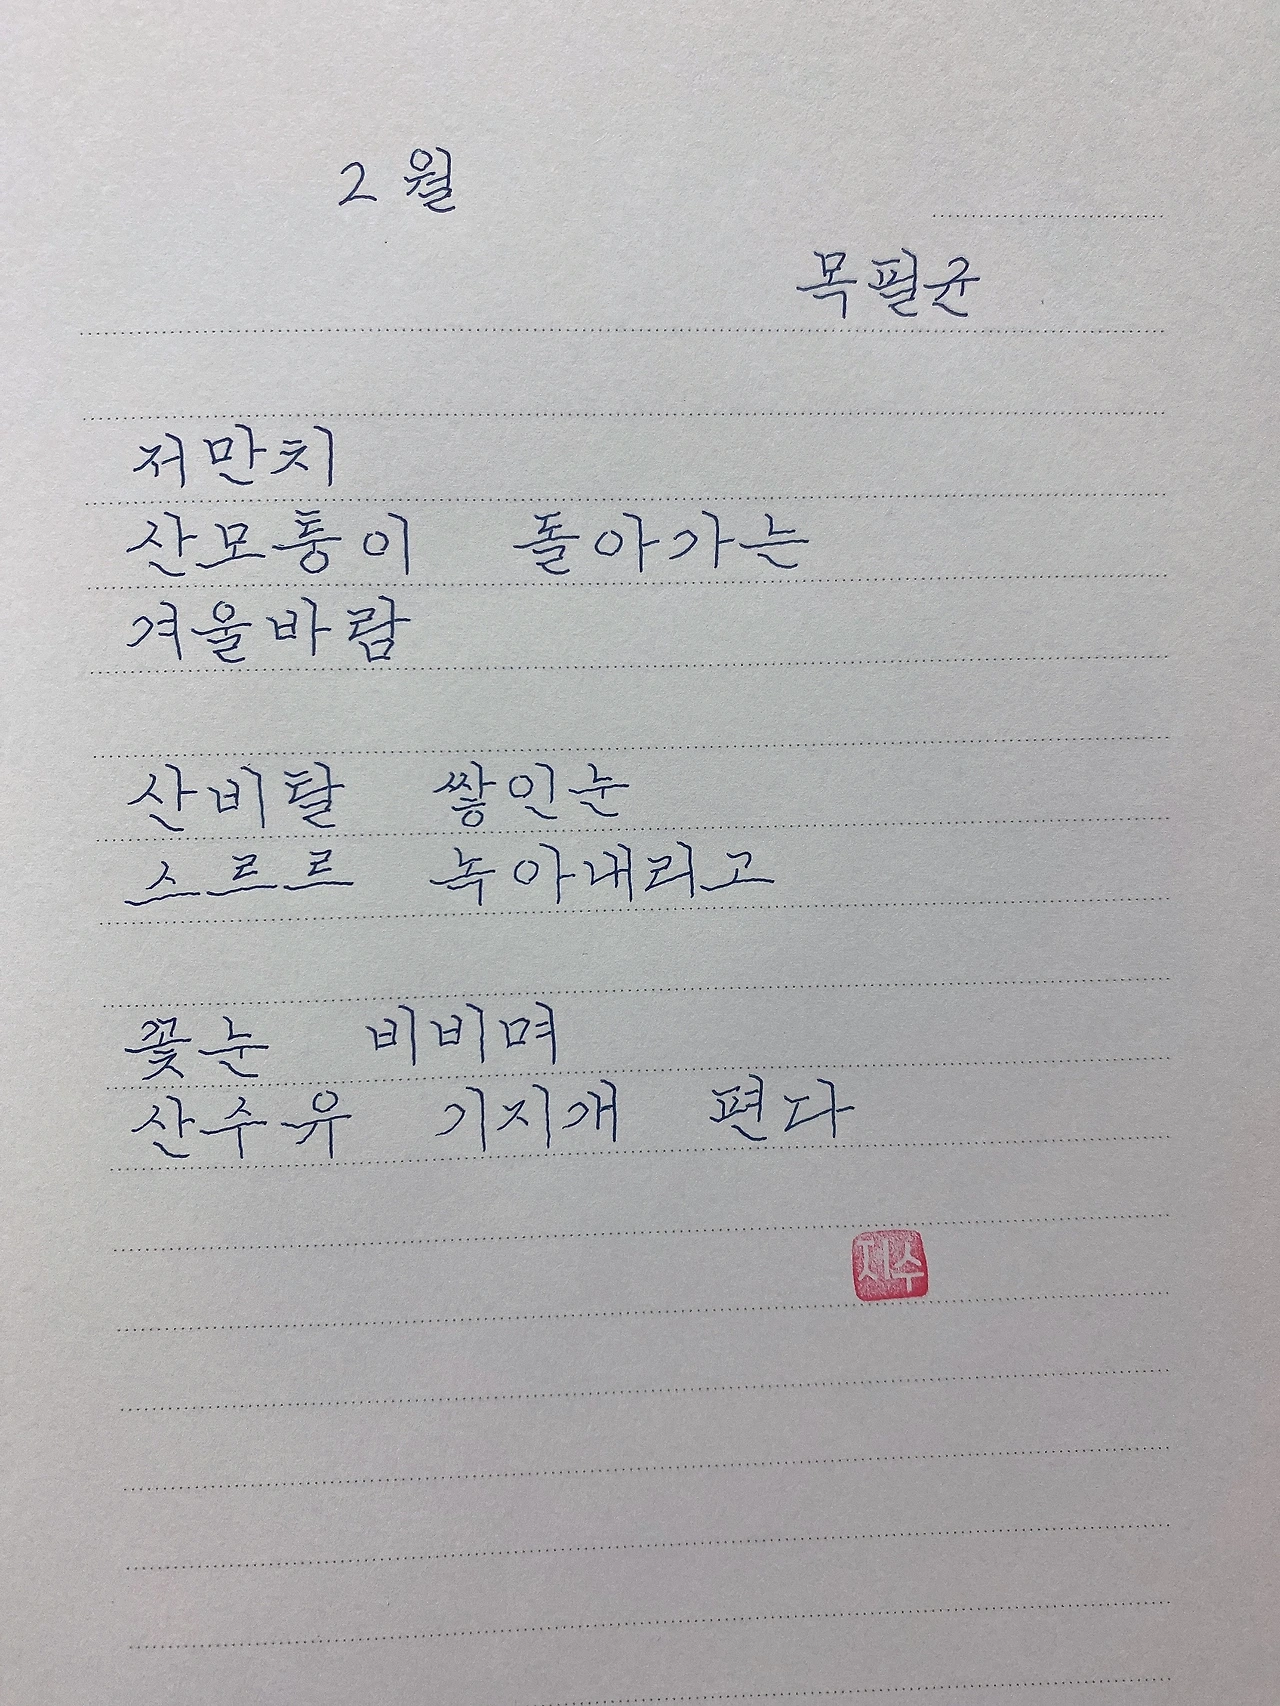 2월
목필균
저만치
산모퉁이 돌아가는
겨울바람
산비탈 쌓인눈
스르르 녹아내리고
꽃눈 비비며
산수유 기지개 편다